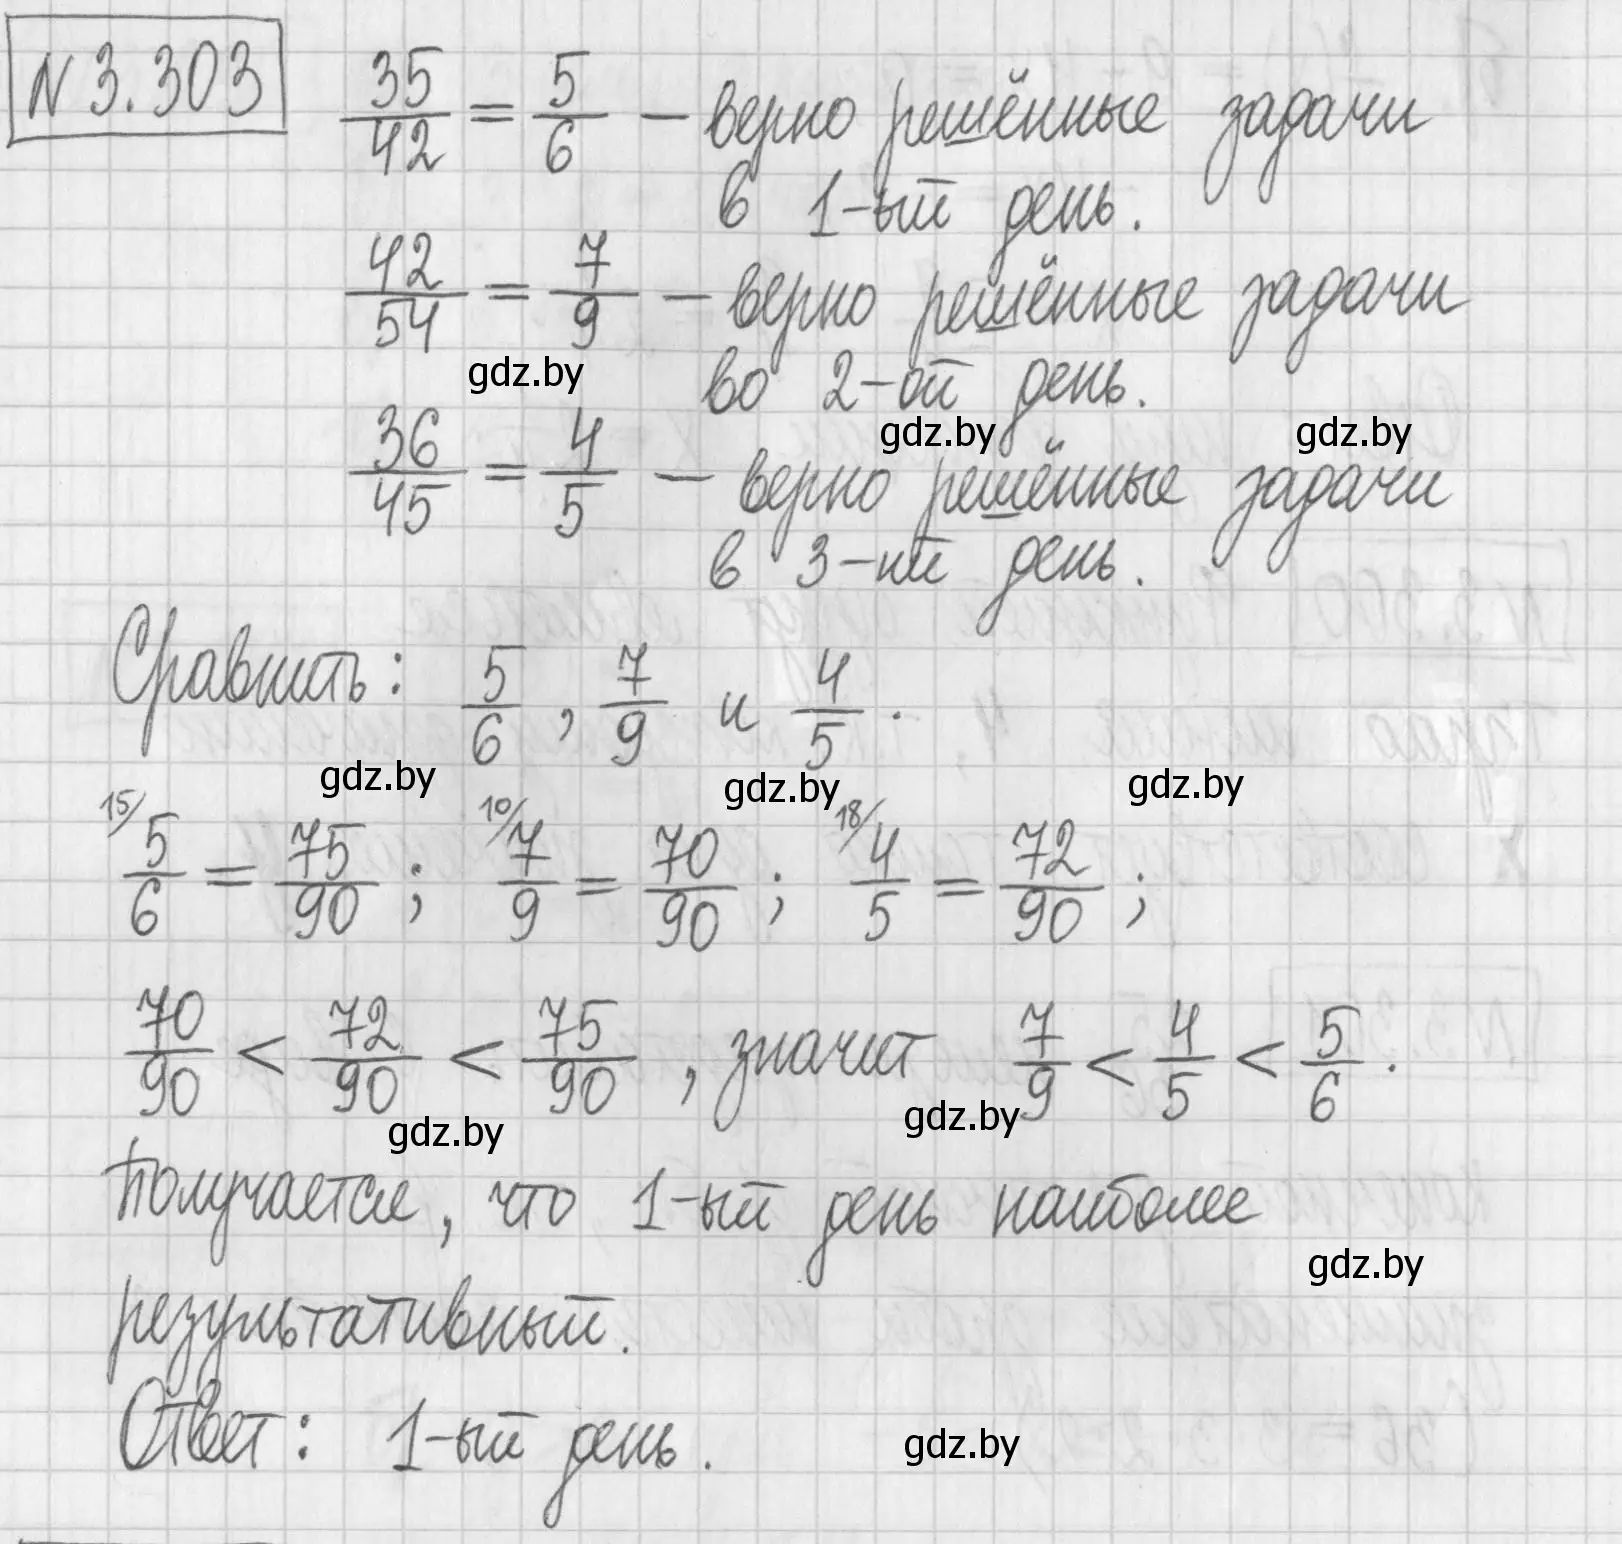 N 3.303
35/42 = 5/6 – верно решённые задачи
в 1-ый день.
42/54 = 7/9 – верно решённые задачи
gdz.by
во 2-ой день.
gdz.by gdz.by
36/45 = 4/5 – верно решённые задачи
в 3-ий день.
Сравнить: 5/6, 7/9 и 4/5.
gdz.by gdz.by gdz.by
15/ 5/6 = 75/90; 10/ 7/9 = 70/90; 18/ 4/5 = 72/90;
70/90 < 72/90 < 75/90, значит 7/9 < 4/5 < 5/6.
gdz.by gdz.by
Получается, что 1-ый день наиболее
gdz.by
результативный.
Ответ: 1-ый день.
gdz.by